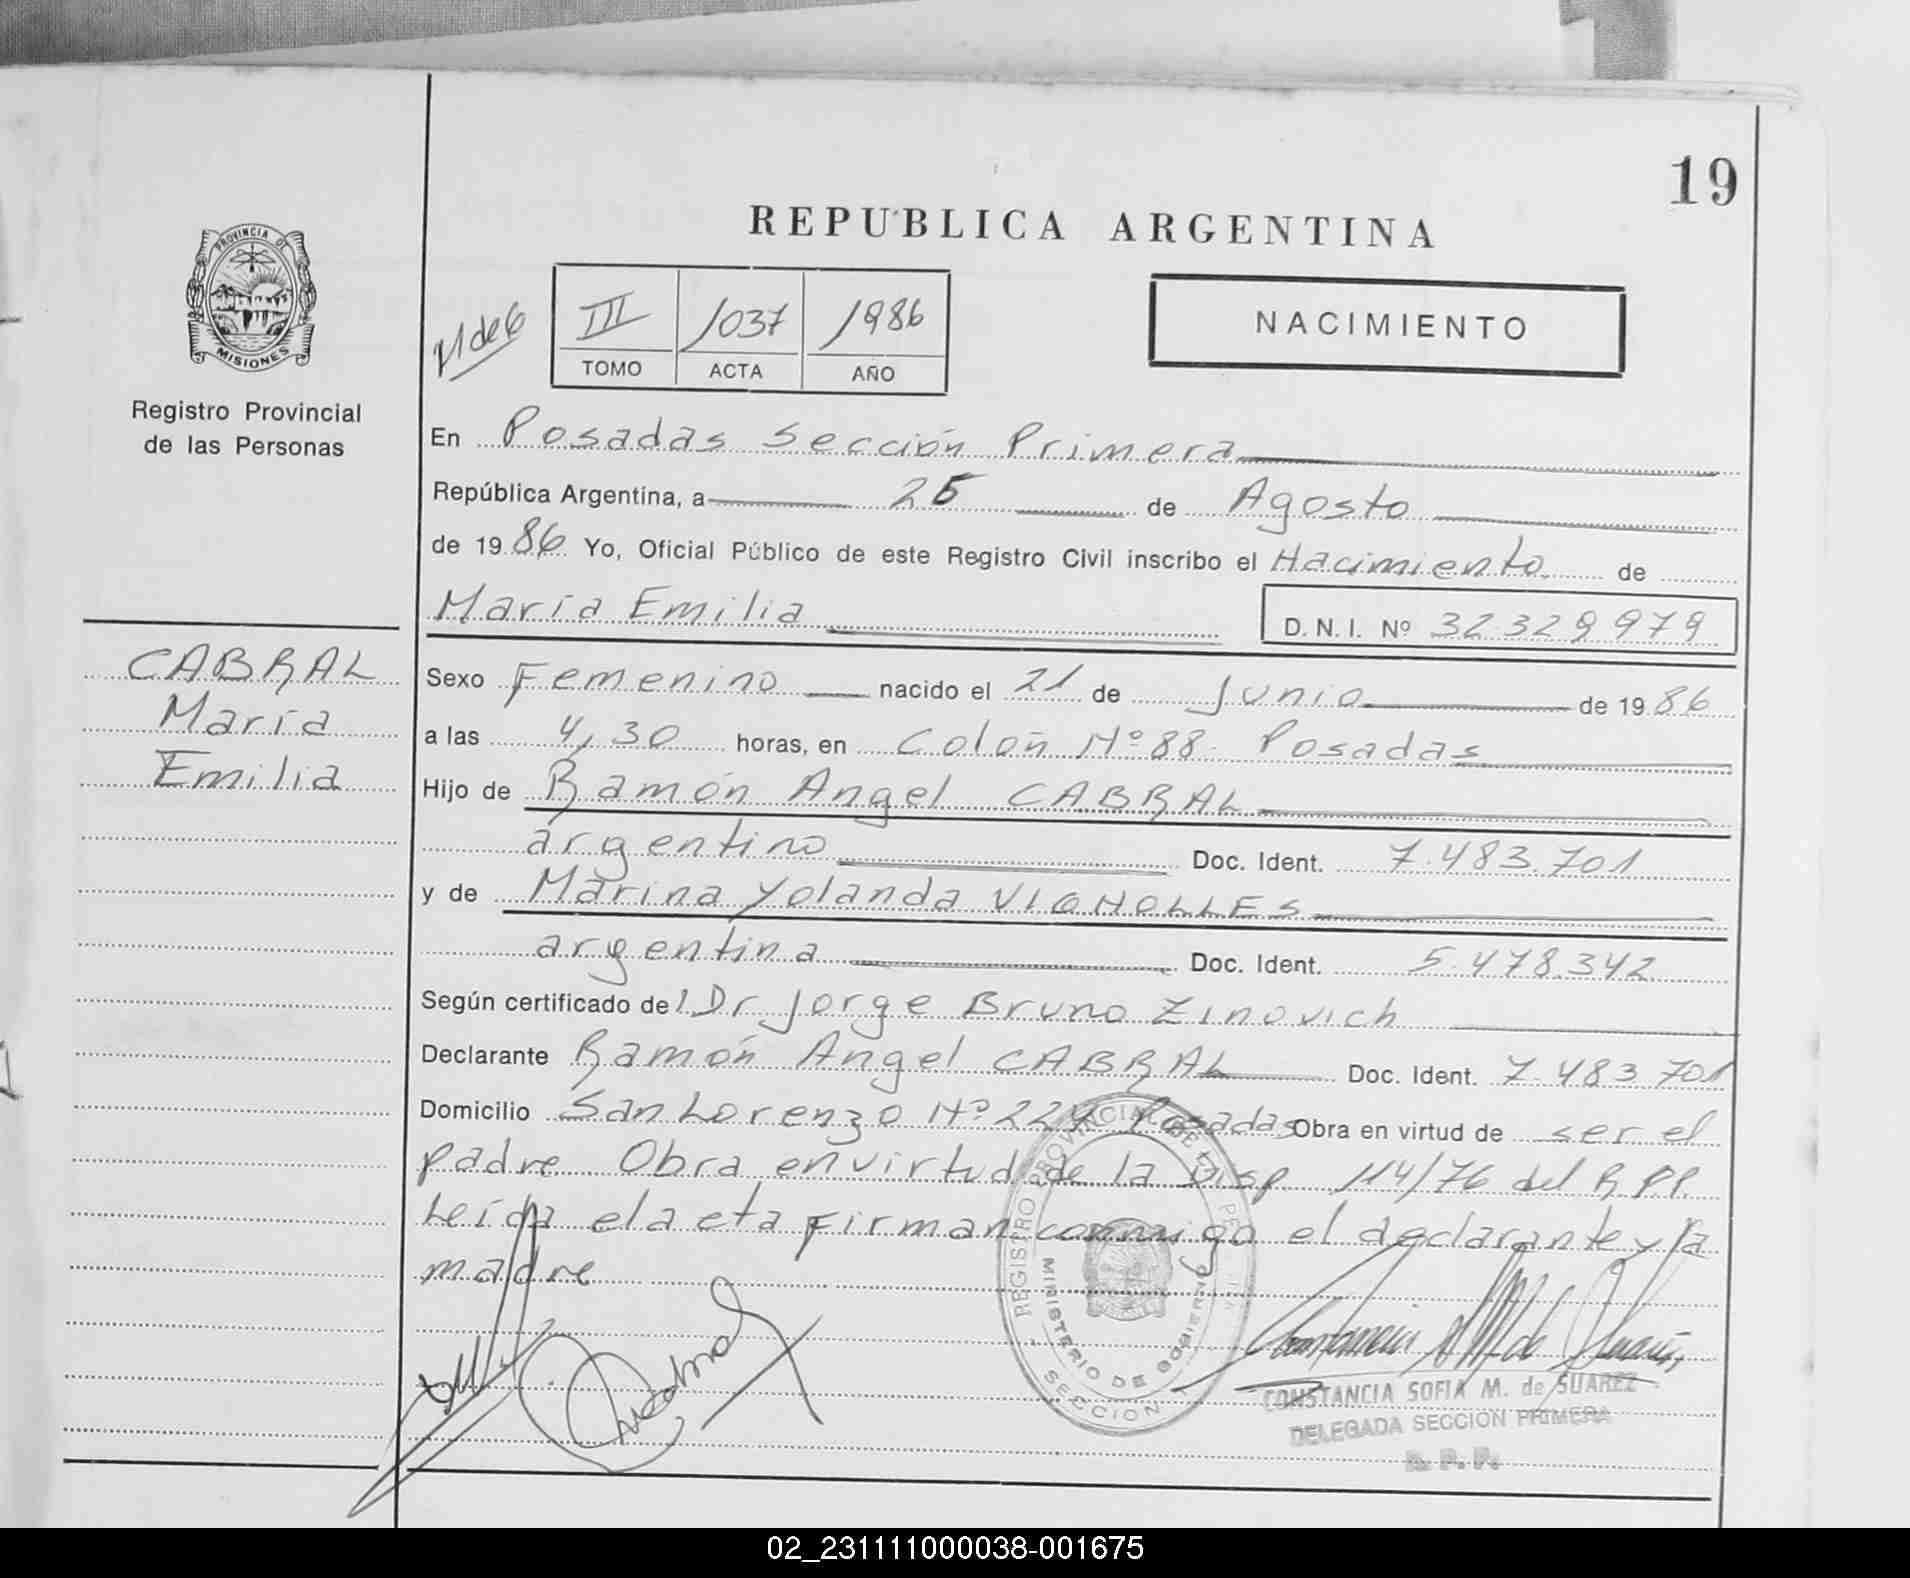 19
REPUBLICA ARGENTINA
PROVINCIA DE
MISIONES
Registro Provincial
de las Personas
21 de 6
III 1037 1986
TOMO ACTA AÑO
NACIMIENTO
En Posadas Sección Primera
República Argentina, a 25 de Agosto
de 1986 Yo, Oficial Público de este Registro Civil inscribo el Nacimiento de
María Emilia D.N.I. Nº 32.329.979
CABRAL
María
Emilia
Sexo Femenino nacido el 21 de Junio de 1986
a las 4,30 horas, en Colón Nº 88. Posadas
Hijo de Ramón Angel CABRAL
argentino Doc. Ident. 7.483.701
y de Marina Yolanda VIGNOLLES
argentina Doc. Ident. 5.478.342
Según certificado del Dr Jorge Bruno Zinovich
Declarante Ramón Angel CABRAL Doc. Ident. 7.483.701
Domicilio San Lorenzo Nº Posadas Obra en virtud de ser el
padre Obra en virtud de la Disp. 114/76 del R.P.P.
Leída el acta firman conmigo el declarante y la
madre
REGISTRO PROVINCIAL DE
MINISTERIO DE GOBIERNO
SECCION
CONSTANCIA SOFIA M. de SUAREZ
DELEGADA SECCION PRIMERA
R. P. P.
02_231111000038-001675